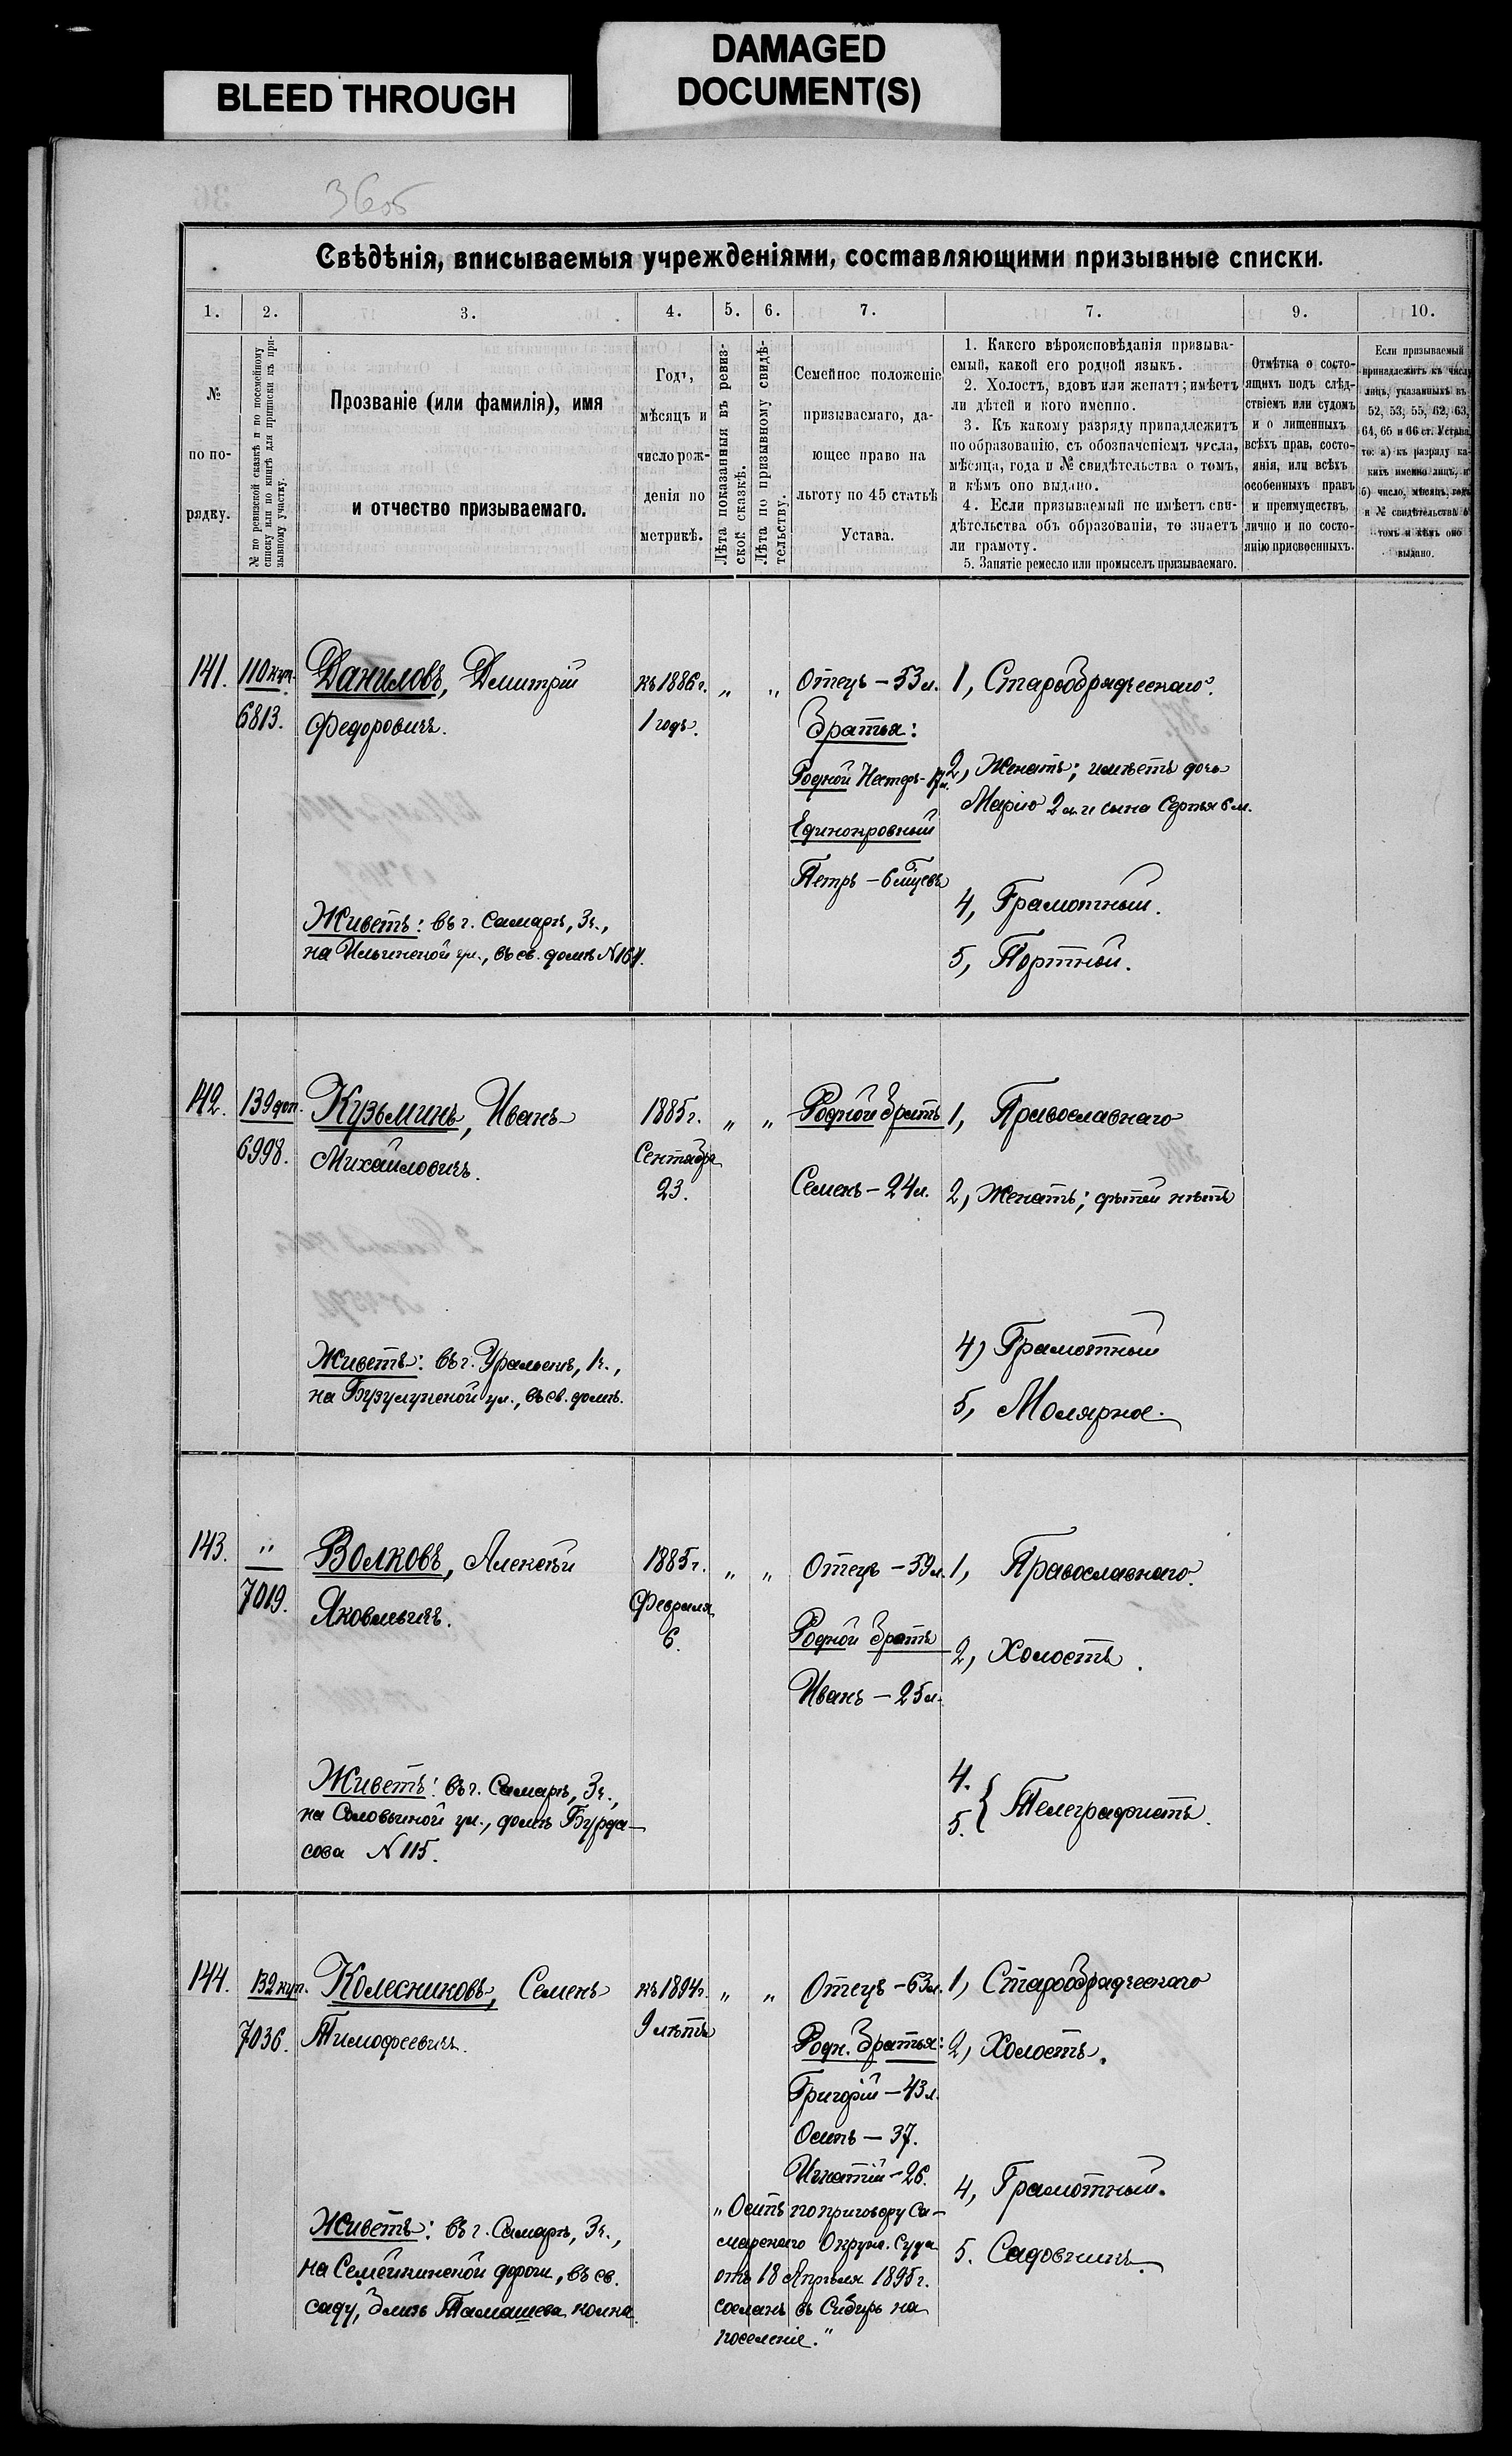 DAMAGED
DOCUMENT(S)
BLEED THROUGH
36об
Свѣдѣнія, вписываемыя учрежденіями, составляющими призывные списки.
1. 2. 3. 4. 5. 6. 7. 7. 9. 10.
№
по по-
рядку.
№ по ревизской сказкѣ и по посемейному
списку или по книгѣ для приписки къ при-
зывному участку.
Прозваніе (или фамилія), имя
и отчество призываемаго.
Годъ,
мѣсяцъ и
число рож-
денія по
метрикѣ.
Лѣта показанныя въ ревиз-
ской сказкѣ.
Лѣта по призывному свидѣ-
тельству.
Семейное положеніе
призываемаго, да-
ющее право на
льготу по 45 статьѣ
Устава.
1. Какого вѣроисповѣданія призыва-
емый, какой его родной языкъ.
2. Холостъ, вдовъ или женатъ; имѣетъ
ли дѣтей и кого именно.
3. Къ какому разряду принадлежитъ
по образованію, съ обозначеніемъ числа,
мѣсяца, года и № свидѣтельства о томъ,
и кѣмъ оно выдано.
4. Если призываемый не имѣетъ сви-
дѣтельства объ образованіи, то знаетъ
ли грамоту.
5. Занятіе ремесло или промыселъ призываемаго.
Отмѣтка о состо-
ящихъ подъ слѣд-
ствіемъ или судомъ
и о лишенныхъ
всѣхъ прав, состо-
янія, или всѣхъ
особенныхъ правъ
и преимуществъ,
лично и по состо-
янію присвоенныхъ.
Если призываемый
принадлежитъ къ числу
лицъ, указанныхъ въ
52, 53, 55, 62, 63,
64, 65 и 66 ст. Устава,
то: а) къ разряду ка-
кихъ именно лицъ, и
б) число, мѣсяцъ, годъ
и № свидѣтельства о
томъ и кѣмъ оно
выдано.
141. 110 куп. Даниловъ, Дмитрій къ 1886 г. „ „ Отецъ – 53 л. 1, Старообрядческаго.
6813. Федоровичъ. 1 годъ. Братья:
Родной Несторъ - 17 л. 2, Женатъ; имѣетъ дочь
Марію 2 л. и сына Сергѣя 6 м.
Единокровный
Петръ – 6 мѣсяцевъ
4, Грамотный.
Живетъ: въ г. Самарѣ, 3 ч.,
на Ильинской ул., въ св. домѣ N 161.
5, Портной.
142. 139 доп. Кузьминъ, Иванъ 1885 г. „ „ Родной братъ 1, Православнаго
6998. Михайловичъ. Сентября
23. Семенъ – 24 л. 2, Женатъ; дѣтей нѣтъ
4) Грамотный
Живетъ: въ г. Уральскѣ, 1 ч.,
на Бузулукской ул., въ св. домѣ.
5, Молярное.
143. „ Волковъ, Алексѣй 1885 г. „ „ Отецъ – 59 л. 1, Православнаго.
7019. Яковлевичъ. Февраля
6. Родной братъ
2, Холостъ.
Иванъ – 25 л.
Живетъ: въ г. Самарѣ, 3 ч.,
на Соловьиной ул., домъ Бурда-
сова N 115.
4.
5. { Телеграфистъ.
144. 132 куп. Колесниковъ, Семенъ къ 1894 г. „ „ Отецъ – 63 л. 1, Старообрядческаго
7036. Тимофеевичъ. 9 лѣтъ Родн. братья: 2, Холостъ.
Григорій – 43 л.
Осипъ – 37.
Игнатій – 26.
4, Грамотный.
„Осипъ по приговору Са-
марскаго Окружн. Суда
отъ 18 Апрѣля 1895 г.
сосланъ въ Сибирь на
поселеніе.“
Живетъ: въ г. Самарѣ, 3 ч.,
на Семейкинской дороги, въ св.
саду, близъ Тамашева
5. Садовникъ